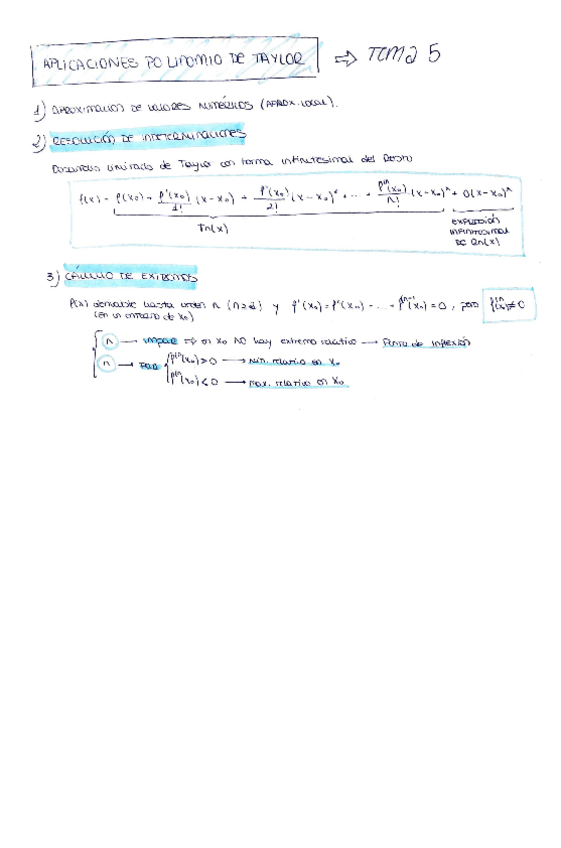 APLICACIONES POLINOMIO DE TAYLOR ⇒ TEMA 5
1) APROXIMACION DE VALORES NUMÉRICOS (APROX. LOCAL).
2) RESOLUCIÓN DE INDETERMINACIONES
Desarrollo limitado de Taylor con forma infinitesimal del Resto
f(x) = f(x₀) + f'(x₀)/1! (x-x₀) + f''(x₀)/2! (x-x₀)² + ... + fⁿ⁾(x₀)/n! (x-x₀)ⁿ + o(x-x₀)ⁿ
Tn(x)
EXPRESIÓN
INFINITESIMAL
DE Rn(x)
3) CÁLCULO DE EXTREMOS
f(x) derivable hasta orden n (n≥2) y f'(x₀) = f''(x₀) = ... = fⁿ⁻¹(x₀) = 0, pero fⁿ⁾(x₀) ≠ 0
(en un entorno de x₀)
n → impar ⇒ en x₀ NO hay extremo relativo → Punto de inflexión
n → PAR fⁿ⁾(x₀) > 0 → Mín. relativo en x₀
fⁿ⁾(x₀) < 0 → Max. relativo en x₀